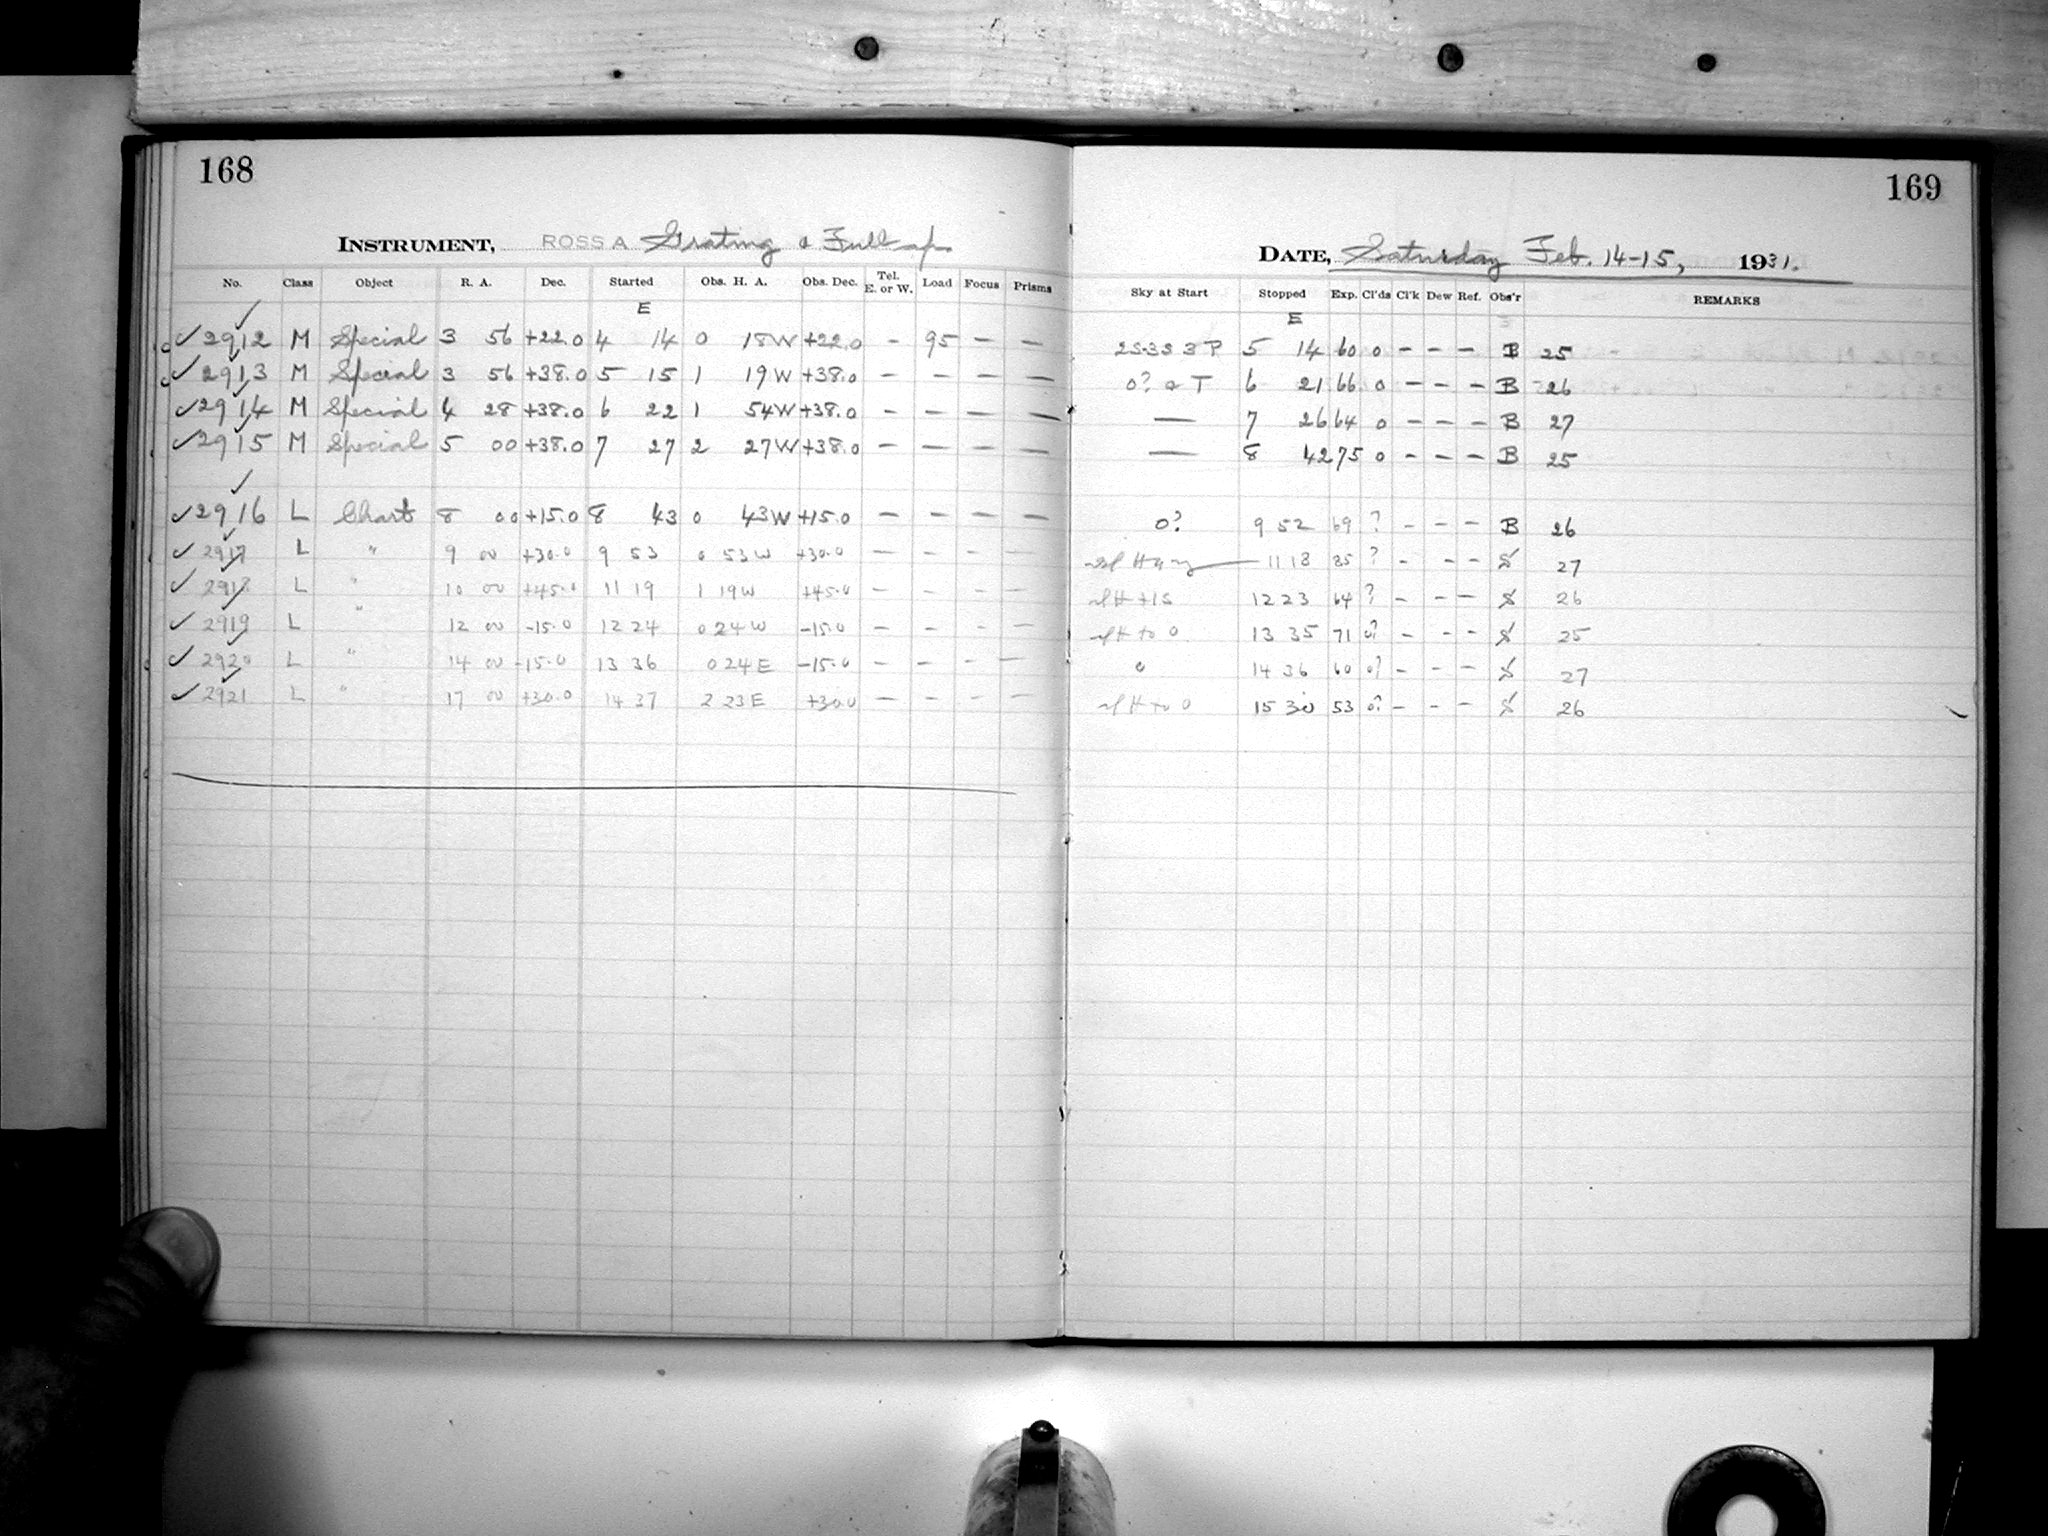 168
INSTRUMENT, ROSS A Grating & Full ap.
No. Class Object R. A. Dec. Started Obs. H. A. Obs. Dec. Tel. E. or W. Load Focus Prisms
E
✓ 2912 M Special 3 56 +22.0 4 14 0 18W +22.0 - 95 - -
✓ 2913 M Special 3 56 +38.0 5 15 1 19W +38.0 - - - -
✓ 2914 M Special 4 28 +38.0 6 22 1 54W +38.0 - - - -
✓ 2915 M Special 5 00 +38.0 7 27 2 27W +38.0 - - - -
✓ 2916 L Chart 8 00 +15.0 8 43 0 43W +15.0 - - - -
✓ 2917 L " 9 00 +30.0 9 53 0 53W +30.0 - - - -
✓ 2918 L " 10 00 +45.0 11 19 1 19W +45.0 - - - -
✓ 2919 L " 12 00 -15.0 12 24 0 24W -15.0 - - - -
✓ 2920 L " 14 00 -15.0 13 36 0 24E -15.0 - - - -
✓ 2921 L " 17 00 +30.0 14 37 2 23E +30.0 - - - -
169
DATE, Saturday Feb. 14-15, 1931.
Sky at Start Stopped Exp. Cl'ds Cl'k Dew Ref. Obs'r REMARKS
E
5 14 60 0 - - - B 25
0? & T 6 21 66 0 - - - B 26
— 7 26 64 0 - - - B 27
— 8 42 75 0 - - - B 25
0? 9 52 69 ? - - - B 26
11 18 85 ? - - - 27
12 23 64 ? - - - 26
to 0 13 35 71 0? - - - 25
0 14 36 60 0? - - - 27
to 0 15 30 53 0? - - - 26